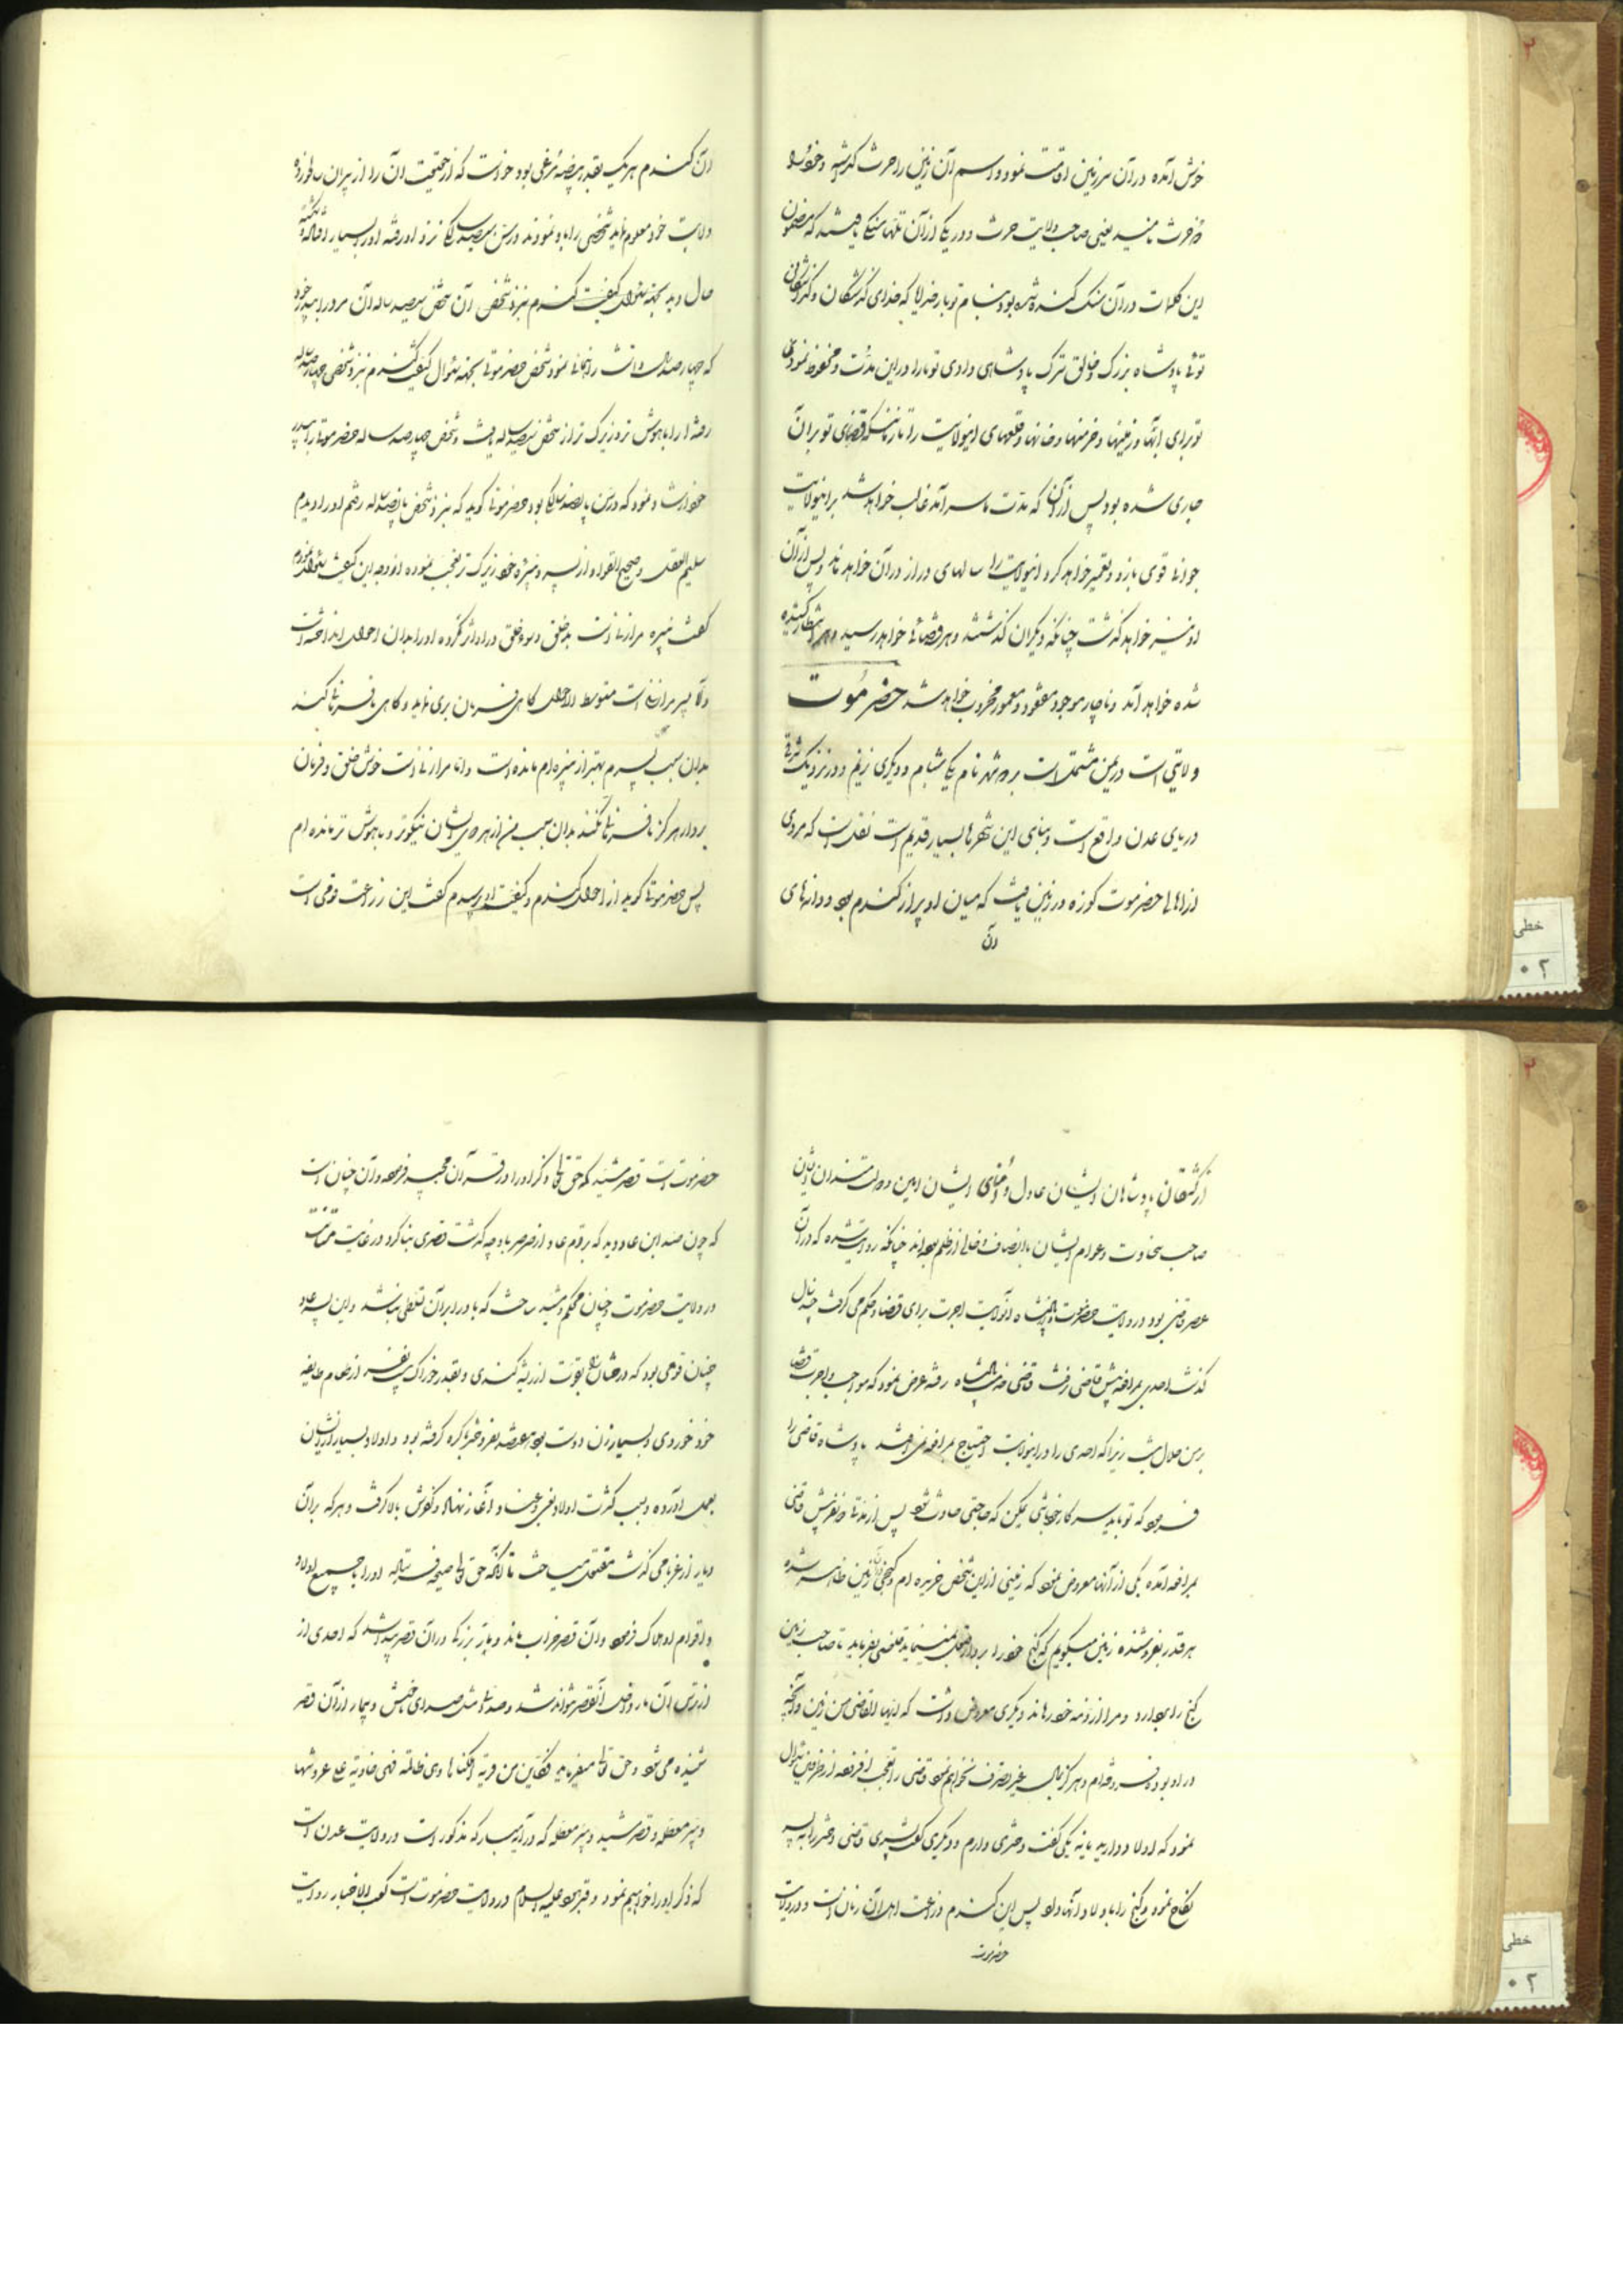 خوش آمده در آن سرزمین اقامت نمود و اسم آن زمین را حرث گذاشته و خود را
ذو حرث نامید یعنی صاحب ولایت حرث و در یکی از آن تلها سنگی یافتند که مضمون
این کلمات در آن سنگ کنده شده بود بنام تو بار خدایا که خدای گذشتگان و
توئی پادشاه بزرگ و خالق ترک پادشاهی دادی تو ما را در این مدت و محفوظ نمودی
تو برای ما آبها و زمینها و خرمنها و خانها و قلعهای این ولایت را تا زمانیکه قضای تو بر آن
جاری شده بود پس از آن که مدت ما سر آمد غالب خواهد شد بر این ولایت
جوانی قوی بازو و تعمیر خواهد کرد این ولایت را سالهای دراز در آن خواهد ماند و پس از آن
او نیز خواهد گذشت چنانکه دیگران گذشتند و هر قضائی خواهد رسید و هر انتظار کشیده
شده خواهد آمد و ناچار موجود مفقود و معمور مخروب خواهد شد حضرموت
ولایتی است در یمن مشتمل است بر دو شهر نام یکی شبام و دیگری تریم و در نزدیک شرقی
دریای عدن واقع است و بنای این شهرها بسیار قدیم است نقل است که مردی
از اهالی حضرموت کوزه در زمین یافت که میان او پر از گندم بود و دانهای
آن
آن گندم هر یک بقدر بیضه مرغی بود خواست که از حقیقت آن را از پیران سالخورده
ولایت خود معلوم نماید شخصی را باو نمودند در سن سیصد سالگی نزد او رفته او را بسیار افتاده و شکسته
حال دید بجهة سئوال کیفیت گندم نزد شخص آن شخص سیصد ساله آن مرد را به پدر خود
که چهار صد سال داشت راهنمائی نمود شخص حضرموتی بجهة سئوال کیفیت گندم نزد شخص چهارصد ساله
رفته او را باهوش تر و زیرک تر از شخص سیصد ساله یافت و شخص چهارصد ساله حضرموتی را به پدر
خود ارشاد نمود که در سن پانصد سالگی بود حضرموتی گوید که نزد شخص پانصد ساله رفتم او را دیدم
سلیم العقل و صحیح القوا و از پسر و نبیره خود زیرک تر تعجب نموده از وجه این کیفیت سئوال نمودم
گفت نبیره مرا زنی است بد خلق و سوء خلق در او اثر کرده او را بدان احوال انداخته است
و اما پسر مرا زنی است متوسط الاحوال گاهی فرمان بری نماید و گاهی نافرمانی کند
بدان سبب پسرم بهتر از نبیره ام مانده است و اما مرا زنی است خوش خلق و فرمان
بردار هرگز نافرمانی نکند بدان سبب من از هر دوی ایشان نیکوتر و باهوش تر مانده ام
پس حضرموتی گوید از احوال گندم و کیفیت او پرسیدم گفت این زراعت قومی است
از گذشتگان پادشاهان ایشان عادل و امنای ایشان امین و دولتمندان ایشان
صاحب سخاوت و عوام ایشان با انصاف و خالی از ظلم بوده اند چنانکه روایت شده که در آن
عصر قاضی بود در ولایت حضرموت و از پادشاه آن ولایت اجرت برای قضا و حکم می گرفت چند سال
گذشت احدی بمرافعه پیش قاضی نرفت قاضی خدمت پادشاه رفته عرض نمود که مواجب و اجرت قضا
بر من حلال نیست زیرا که احدی را در این ولایت احتیاج بمرافعه نمی افتد پادشاه قاضی را
فرمود که تو باید سر کار خود باشی ممکن که حاجتی حادث شود پس از مدتی دو نفر پیش قاضی
بمرافعه آمده یکی از آنها معروض نمود که زمینی از این شخص خریده ام و گنجی در آن زمین ظاهر شده
هر قدر بفروشنده زمین میگویم که گنج خود را بردار قبول نمینماید قاضی بفرماید تا صاحب زمین
گنج را بردارد و مرا از ذمه خود رهاند دیگری معروض داشت که ایها القاضی من زمین و آنچه
در او بوده فروخته ام و هرگز بمال غیر تصرف نخواهم نمود قاضی را تعجب افزوده از طرفین سئوال
نمود که اولاد دارید یا نه یکی گفت دختری دارم و دیگری گفت پسری قاضی دختر را به پسر
نکاح نمود و گنج را باولاد آنها داد پس این گندم زراعت اهل آن زمان است و در ولایت
حضرموت
حضرموت است قصر مشید که حق تعالی ذکر او را در قرآن مجید فرموده و آن چنان است
که چون صد ابن عاد دید که بر قوم عاد از صرصر باد چه گذشت قصری بنا کرد در غایت متانت
در ولایت حضرموت و چنان محکم و مشید ساخت که باد را بر آن تسلطی نباشد و این پسر عاد
چنان قوی بود که درختان را بقوت از ریشه کندی و بقدر خوراک بیست نفر از طعام طایفه
خود خوردی و بسیار زن دوست بوده هفتصد نفر دختر باکره گرفته بود و اولاد بسیار از ایشان
بعمل آورده و بسبب کثرت اولاد بغی و عناد آغاز نهاد و کفرش بالا گرفت و هر که بر آن
دیار از غربا می گذشت مقتول میساخت تا آنکه حق تعالی صیحه فرستاده او را با جمیع اولاد
و اقوام او هلاک فرمود و آن قصر خراب ماند و مار بزرگی در آن قصر پیدا شد که احدی از
از ترس آن مار داخل آن قصر نتواند شد و صدائی مثل صدای خنبش و بیمار از آن قصر
شنیده می شود و حق تعالی میفرماید فکاین من قریة اهلکناها و هی ظالمة فهی خاویة علی عروشها
و بئر معطلة و قصر مشید و بئر معطله که در آیه مبارکه مذکور است در ولایت عدن است
که ذکر او را خواهیم نمود و قبر هود علیه السلام در ولایت حضرموت است کعب الاخبار روایت
خطی
۲۰
خطی
۲۰